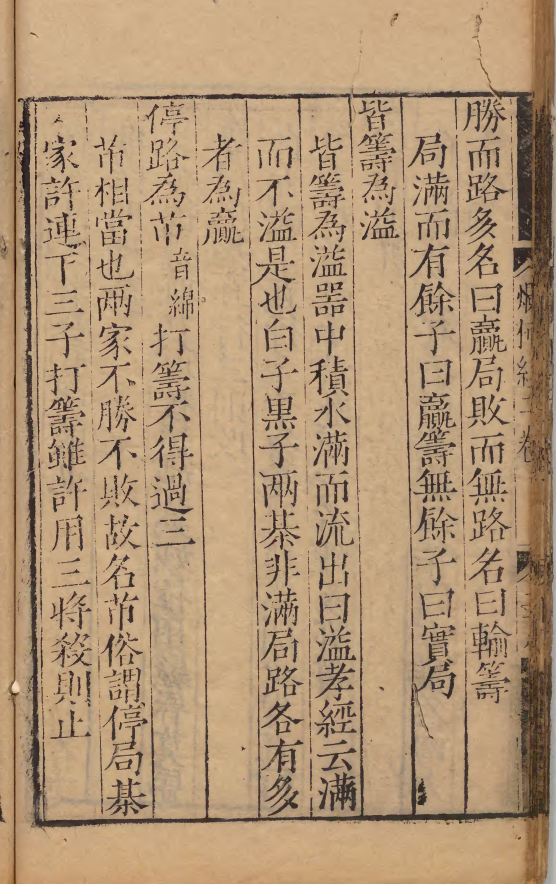 勝而路多名曰贏局敗而無路名曰輸籌
局滿而有餘子曰贏籌無餘子曰實局
皆籌為溢
皆籌為溢器中積水滿而流出曰溢孝經云滿
而不溢是也白子黒子兩棊非滿局路各有多
者為贏
停路為芇音綿打籌不得過三
芇相當也兩家不勝不敗故名芇俗謂停局棊
家許連下三子打籌雖許用三將殺則止